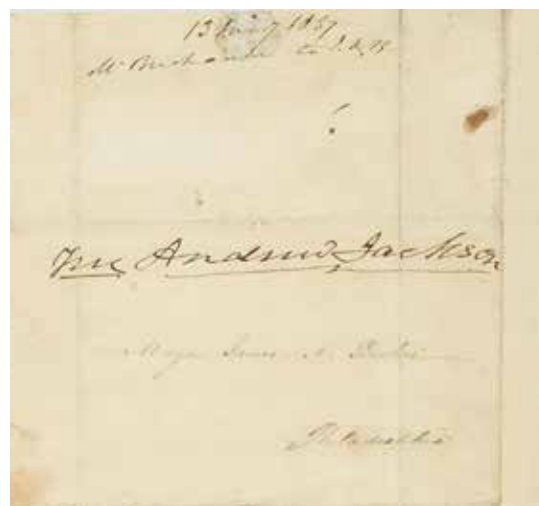 13 Aug 1837
Mr Buchanan to J. N. B
Free Andrew Jackson
Major James N. Barker
Philadelphia